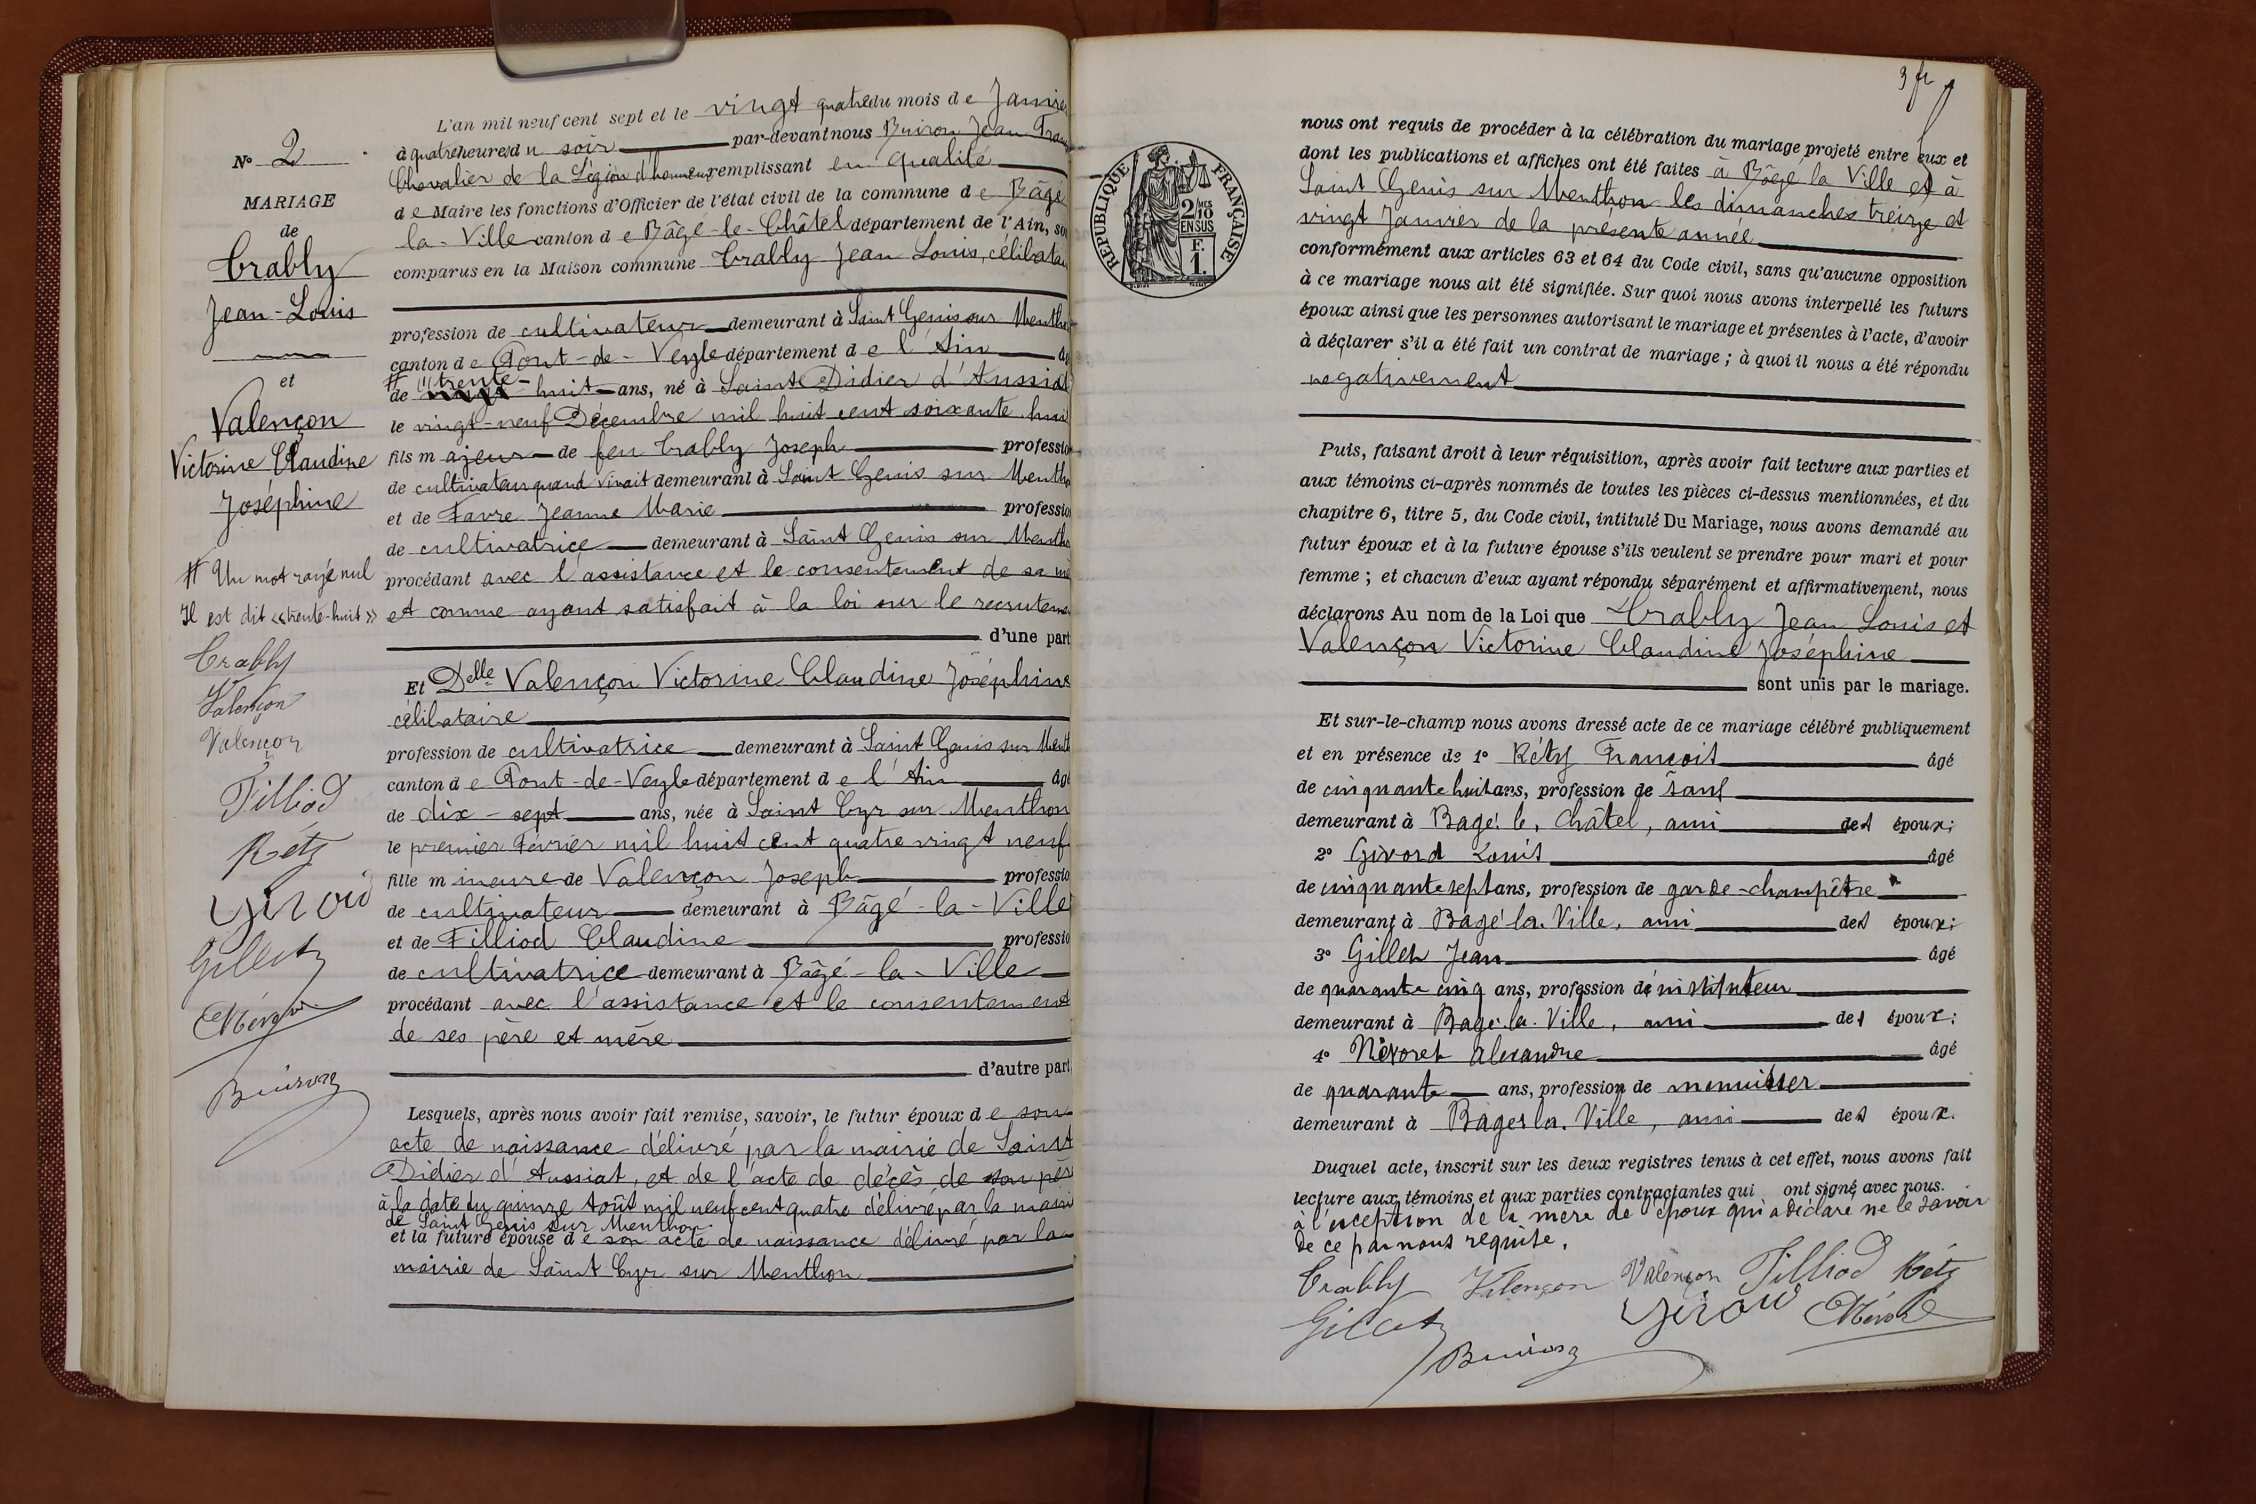 N° 2
MARIAGE
de
Crably
Jean-Louis
et
Valençon
Victorine Claudine
Joséphine
# Un mot rayé nul
Il est dit «trente-huit»
Crably
Valençon
Valençon
Filliod
Réty
Givord
Gillet
Buiron
L'an mil neuf cent sept et le vingt quatre du mois de Janvier
à quatre heures du soir par-devant nous Buiron Jean Fran
Chevalier de la Légion d'honneur remplissant en qualité
de Maire les fonctions d'Officier de l'état civil de la commune de Bâgé
la-Ville canton de Bâgé-le-Châtel département de l'Ain, so
comparus en la Maison commune Crably Jean Louis, célibatai
profession de cultivateur demeurant à Saint Genis sur Mentho
canton de Pont-de-Veyle département de l'Ain âg
# de "trente-huit ans, né à Saint Didier d'Aussiat
le vingt-neuf Décembre mil huit cent soixante huit
fils majeur de feu Crably Joseph professio
de cultivateur quand vivait demeurant à Saint Genis sur Mentho
et de Favre Jeanne Marie professio
de cultivatrice demeurant à Saint Genis sur Mentho
procédant avec l'assistance et le consentement de sa mè
et comme ayant satisfait à la loi sur le recruteme
d'une part
Et Delle Valençon Victorine Claudine Joséphine
célibataire
profession de cultivatrice demeurant à Saint Genis sur Menth
canton de Pont-de-Veyle département de l'Ain âgé
de dix-sept ans, née à Saint Cyr sur Menthon
le premier Février mil huit cent quatre vingt neuf
fille mineure de Valençon Joseph professio
de cultivateur demeurant à Bâgé-la-Ville
et de Filliod Claudine professio
de cultivatrice demeurant à Bâgé-la-Ville
procédant avec l'assistance et le consentement
de ses père et mère
d'autre part
Lesquels, après nous avoir fait remise, savoir, le futur époux de son
acte de naissance délivré par la mairie de Saint
Didier d'Aussiat, et de l'acte de décès de son pèr
à la date du quinze Août mil neuf cent quatre délivré par la mairi
de Saint Genis sur Menthon.
et la future épouse de son acte de naissance délivré par la
mairie de Saint Cyr sur Menthon
RÉPUBLIQUE FRANÇAISE
2 MES
10
EN SUS
F.
1.
3 fr
nous ont requis de procéder à la célébration du mariage projeté entre eux et
dont les publications et affiches ont été faites à Bâgé la Ville et à
Saint Genis sur Menthon les dimanches treize et
vingt Janvier de la présente année
conformément aux articles 63 et 64 du Code civil, sans qu'aucune opposition
à ce mariage nous ait été signifiée. Sur quoi nous avons interpellé les futurs
époux ainsi que les personnes autorisant le mariage et présentes à l'acte, d'avoir
à déclarer s'il a été fait un contrat de mariage ; à quoi il nous a été répondu
négativement
Puis, faisant droit à leur réquisition, après avoir fait lecture aux parties et
aux témoins ci-après nommés de toutes les pièces ci-dessus mentionnées, et du
chapitre 6, titre 5, du Code civil, intitulé Du Mariage, nous avons demandé au
futur époux et à la future épouse s'ils veulent se prendre pour mari et pour
femme ; et chacun d'eux ayant répondu séparément et affirmativement, nous
déclarons Au nom de la Loi que Crably Jean Louis et
Valençon Victorine Claudine Joséphine
sont unis par le mariage.
Et sur-le-champ nous avons dressé acte de ce mariage célébré publiquement
et en présence de 1° Réty François âgé
de cinquante huit ans, profession de
demeurant à Bagé le Châtel, ami des époux;
2° Givord Louis âgé
de cinquante sept ans, profession de garde-champêtre
demeurant à Bagé la Ville, ami des époux;
3° Gillet Jean âgé
de quarante cinq ans, profession d'instituteur
demeurant à Bagé la Ville, ami des époux;
4° Névoret Alexandre âgé
de quarante ans, profession de menuisier
demeurant à Bagé la Ville, ami des époux.
Duquel acte, inscrit sur les deux registres tenus à cet effet, nous avons fait
lecture aux témoins et aux parties contractantes qui ont signé avec nous.
à l'exception de la mère de l'époux qui a déclaré ne le savoir
de ce par nous requise.
Crably Valençon Valençon Filliod Réty
Gillet Givord Névoret
Buiron